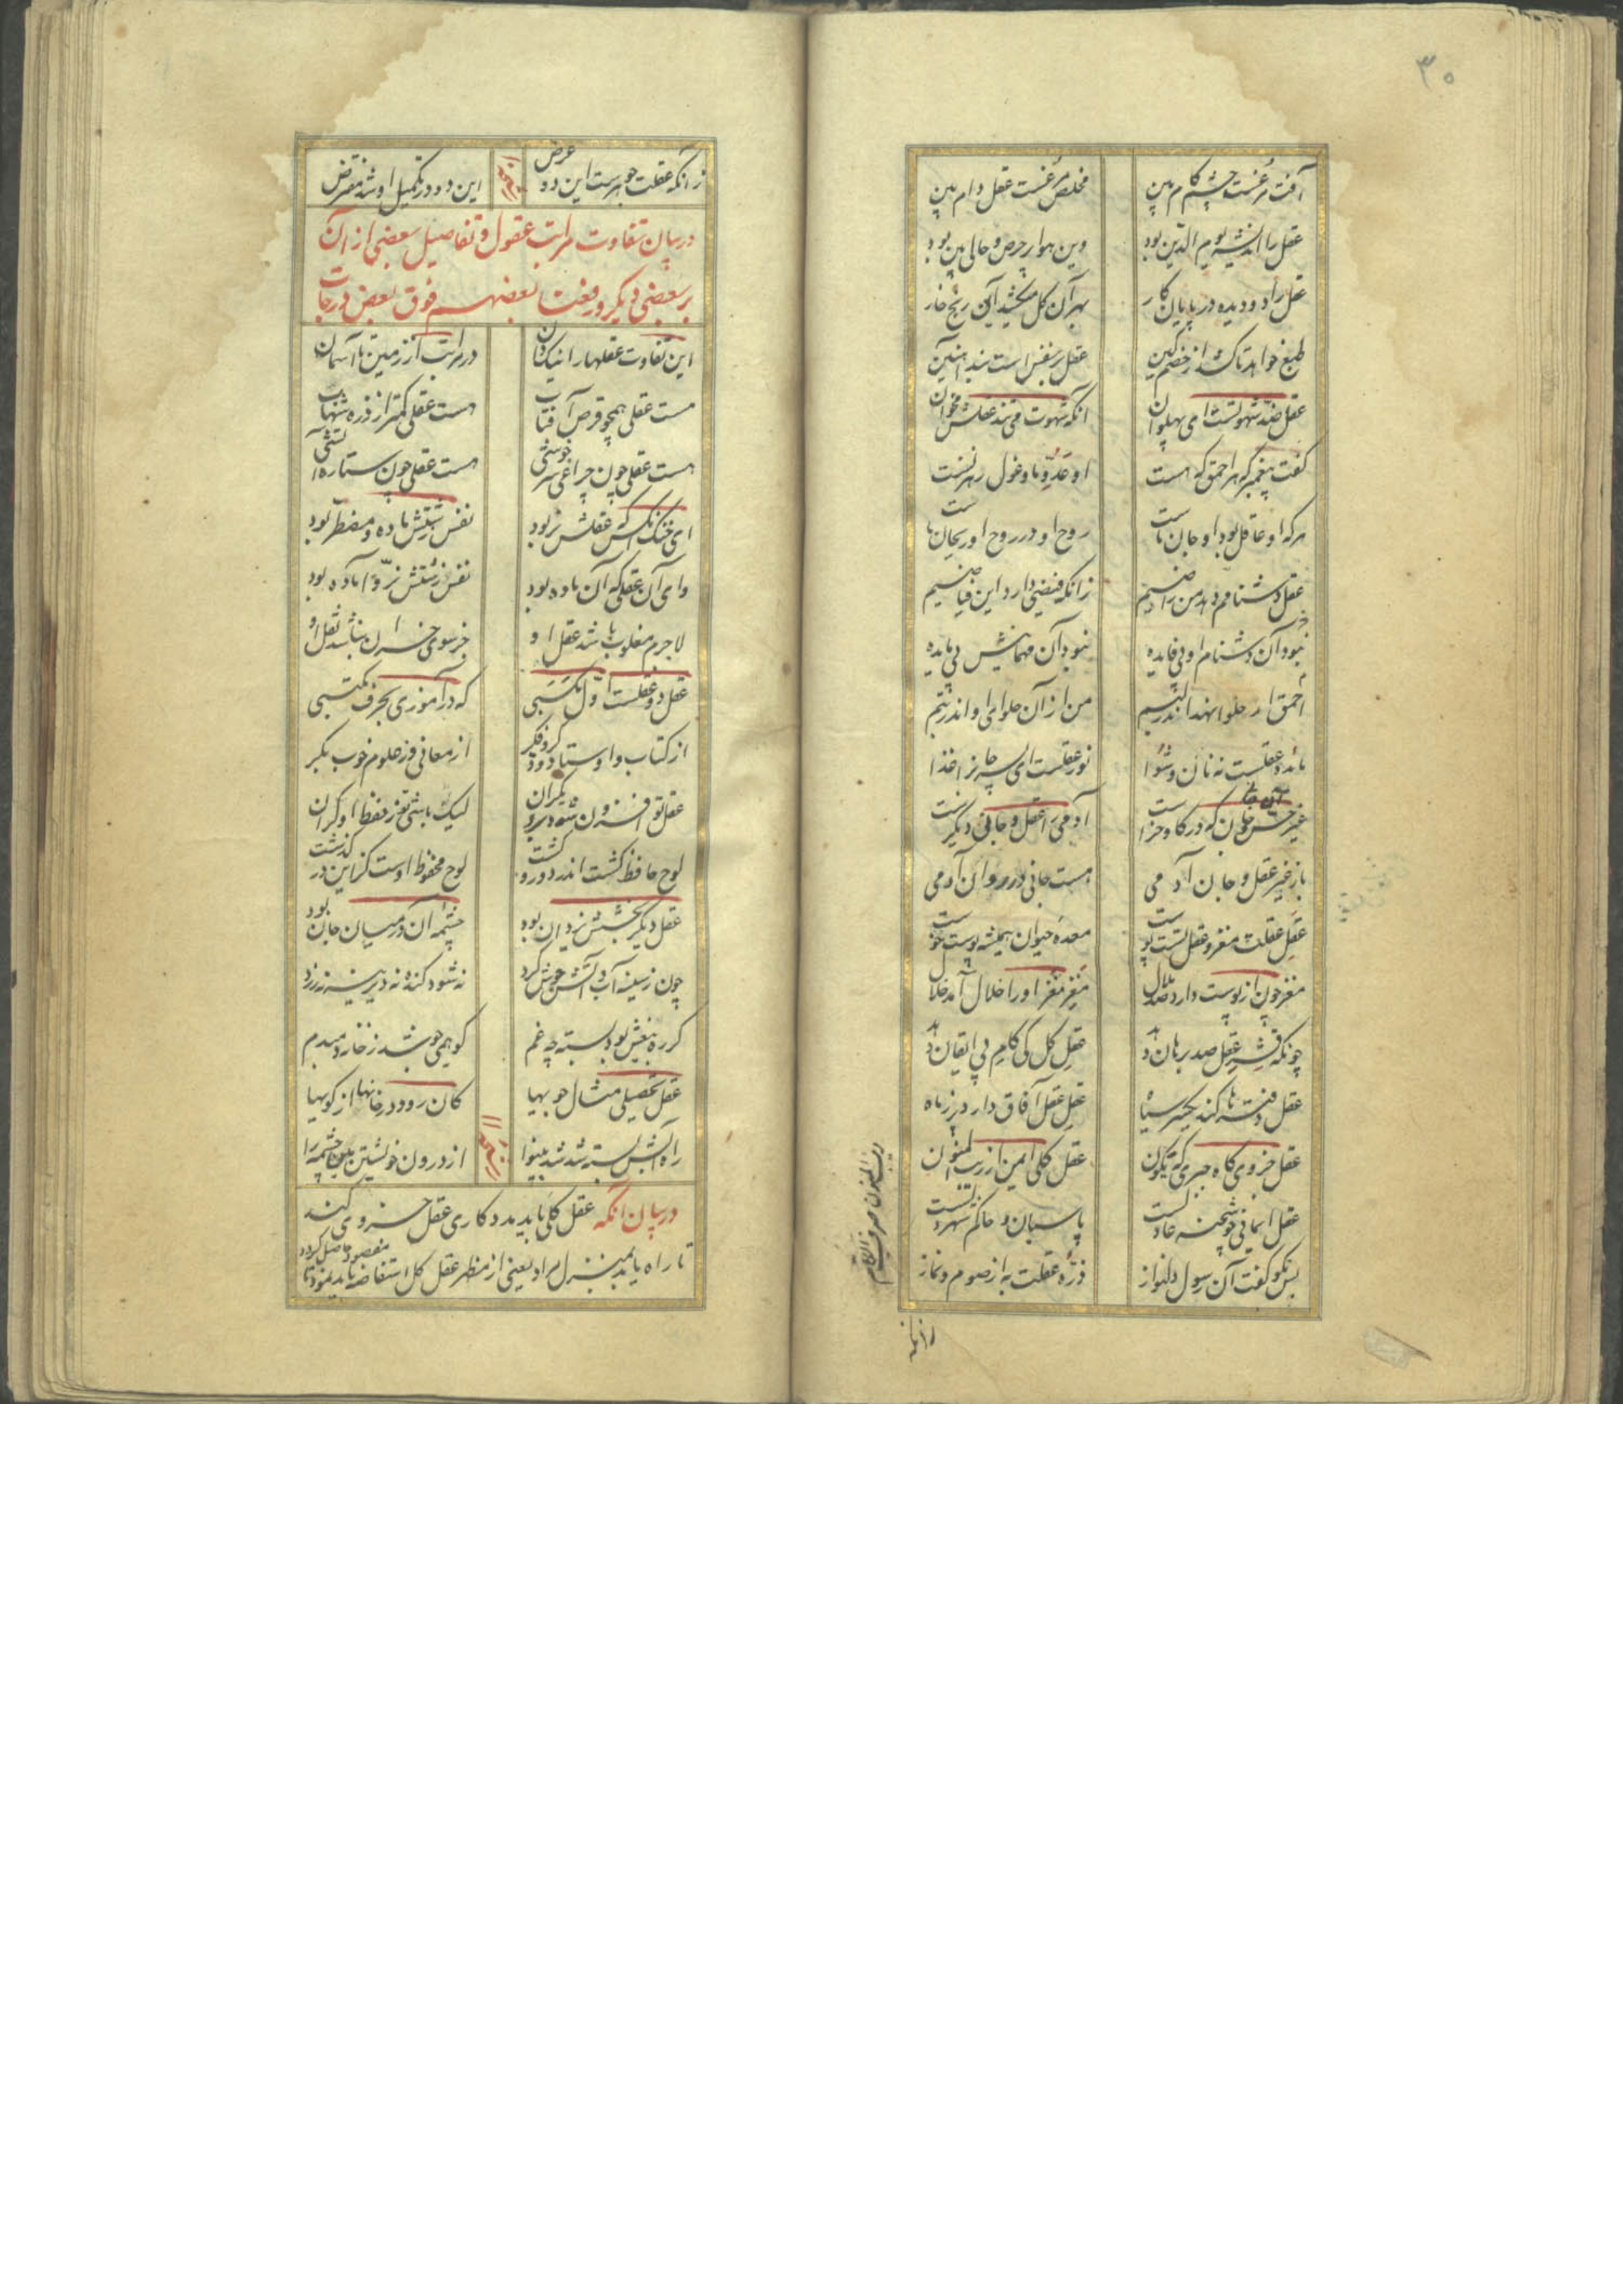 ۳۰
آفت مرغست چشم کام بین مخلص مرغست عقل دام بین
عقل را اندیشه یوم الدین بود وین هوا پر حرص و حالی بین بود
عقل را دو دیده در پایان کار بهر آن گل میکشید آن رنج خار
طبع خواهد تا کشد از خصم کین عقل بر نفس است بند آهنین
عقل ضد شهوتست ای پهلوان آنکه شهوت می تند عقلش مخوان
گفت پیغمبر که هر احمق که هست او عدو ما و غول رهزنست
هر که او عاقل بود او جان ماست روح او در روح او ریحان ماست
عقل دشنامم دهد من راضیم زانکه فیضی دارد این فیاضیم
نبود آن دشنام او بی فایده نبود آن مهمانیش بی مایده
احمق ار حلوا نهد اندر لبم من از آن حلوای او اندر تبم
مائده عقلست نه نان و شوا نور عقلست ای پسر جانرا غذا
غیر آن جان که در گاو و خر است آدمی را عقل و جانی دیگرست
باز غیر عقل و جان آدمی هست جانی در روان آدمی
عقل عقلت مغز و عقل تست پوست معده حیوان همیشه پوست جوست
مغز جوی از پوست دارد صد ملال مغز مغز او را حلال آمد حلال
چونکه قشر عقل صد برهان دهد عقل کل کی گام بی ایقان نهد
عقل دفترها کند یکسر سیاه عقل عقل آفاق دارد پر ز ماه
عقل جزوی گاه چیره گه نگون عقل کلی ایمن از ریب المنون
عقل ایمانی چو شحنه عادلست پاسبان و حاکم شهر دلست
بس نکو گفت آن رسول دلنواز ذره عقلت به از صوم و نماز
ریب المنون صرف
زانکه
زانکه عقلت جوهرست این دو عرض این دو در تکمیل او شد مفترض
در بیان تفاوت مراتب عقول و تفاضیل بعضی از آن
بر بعضی دیگر و رفعنا بعضهم فوق بعض درجات
این تفاوت عقلها را نیک دان در مراتب از زمین تا آسمان
هست عقلی همچو قرص آفتاب هست عقلی کمتر از ذره شهاب
هست عقلی چون چراغی سر خوشی هست عقلی چون ستاره آتشی
ای خنک آنکس که عقلش نر بود نفس زشتش ماده و مضطر بود
وای آن عقلی که آن ماده بود نفس زشتش نر و آماده بود
لاجرم مغلوب باشد عقل او جز سوی خسران نباشد نقل او
عقل دو عقلست اول مکسبی که در آموزی بحرف مکتبی
از کتاب و اوستاد و ذکر و فکر از معانی وز علوم خوب بکر
عقل تو افزون شود بر دیگران لیک باشی تو ز حفظ او گران
لوح حافظ گشت اندر دور و گشت لوح محفوظ اوست کز این در گذشت
عقل دیگر بخشش یزدان بود چشمه آن در میان جان بود
چون ز سینه آب دانش جوش کرد نه شود گنده نه دیرینه نه زرد
گر ره نبعش بود بسته چه غم کو همی جوشد ز خانه دمبدم
عقل تحصیلی مثال جویها کان رود در خانها از کویها
راه آبش بسته شد شد بینوا از درون خویشتن بین چشمه را
در بیان آنکه عقل کلی باید مددکاری عقل جزوی کند
تا راه یابد بمنزل مراد یعنی از منظر عقل کل استفاضه باید نمود تا
مقصود حاصل گردد